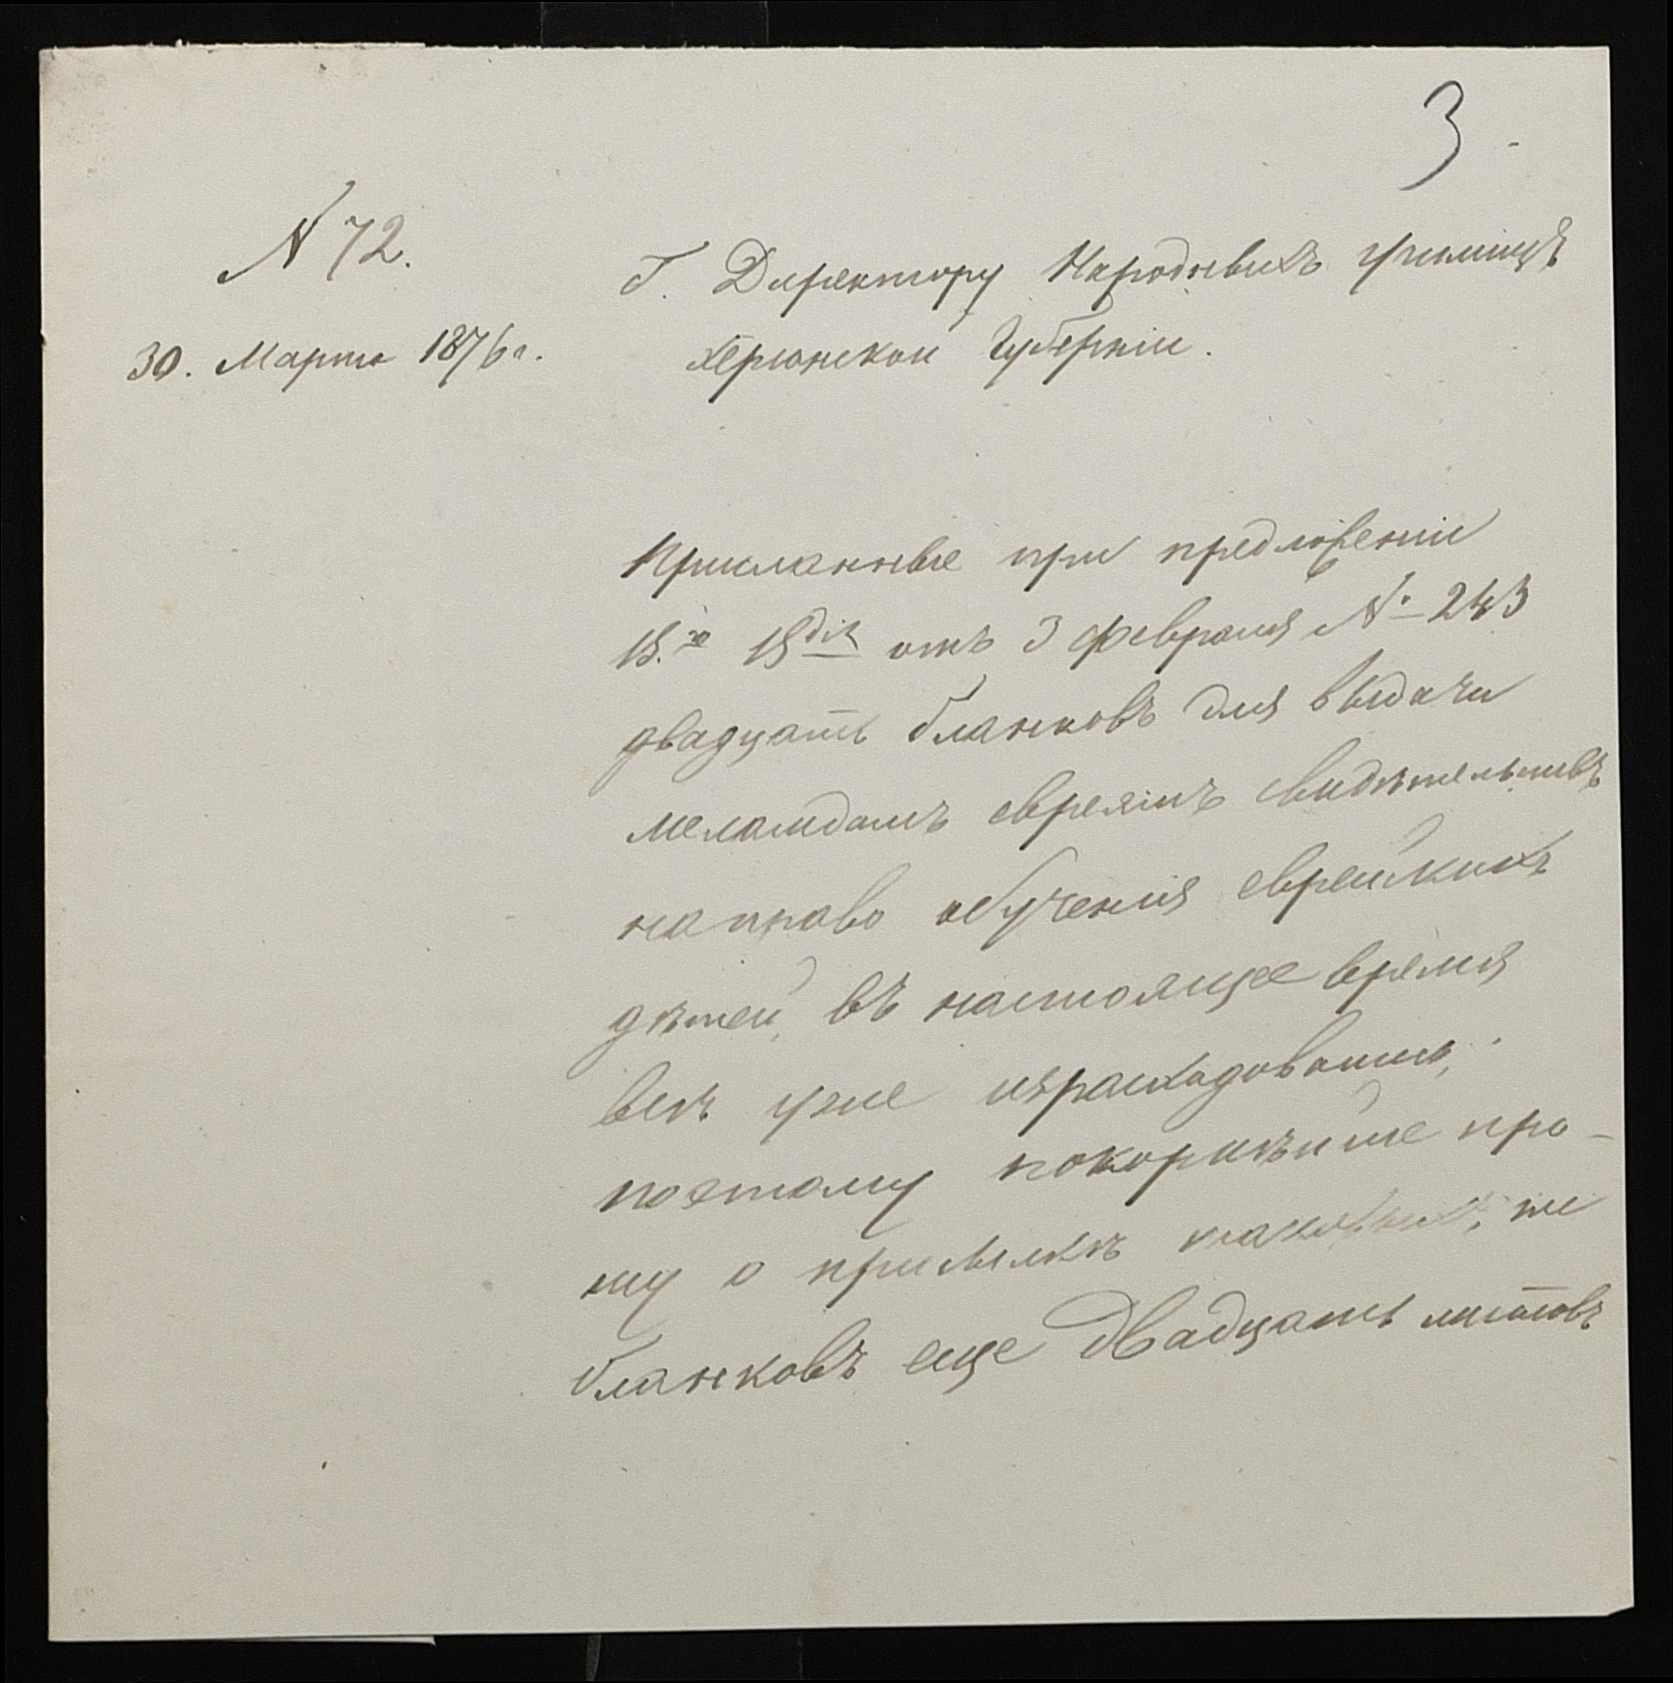 3
N 72.
30. Марта 1876 г.
Г. Директору Народныхъ училищъ
Херсонской Губерніи.
Присланные при предложеніи
В.го В.дія отъ 3 февраля №
двадцать бланковъ для выдачи
меламдамъ евреямъ свидѣтельствъ
на право обученія еврейскихъ
дѣтей, въ настоящее время
всѣ уже израсходовались,
поэтому покорнѣйше про-
шу о присылкѣ таковыхъ же
бланковъ еще двадцать листовъ